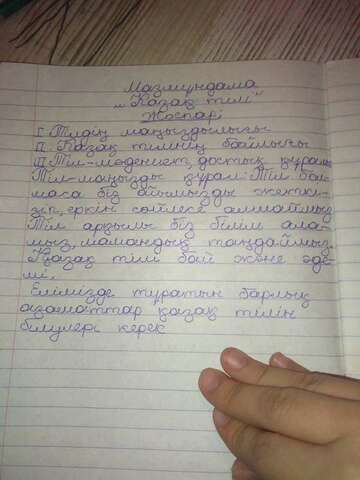 Мазмұндама
„Қазақ тілі“
Жоспары
I. Тілдің маңыздылығы
II. Қазақ тілінің байлығы
III Тіл-мәдениет, достық құралы
Тіл-маңызды құрал. Тіл бол-
маса біз ойымызды жеткі-
зіп, еркін сөйлесе алмаймыз.
Тіл арқылы біз білім ала-
мыз, мамандық таңдаймыз.
Қазақ тілі бай және әде-
мі.
Елімізде тұратын барлық
азаматтар қазақ тілін
білулері керек